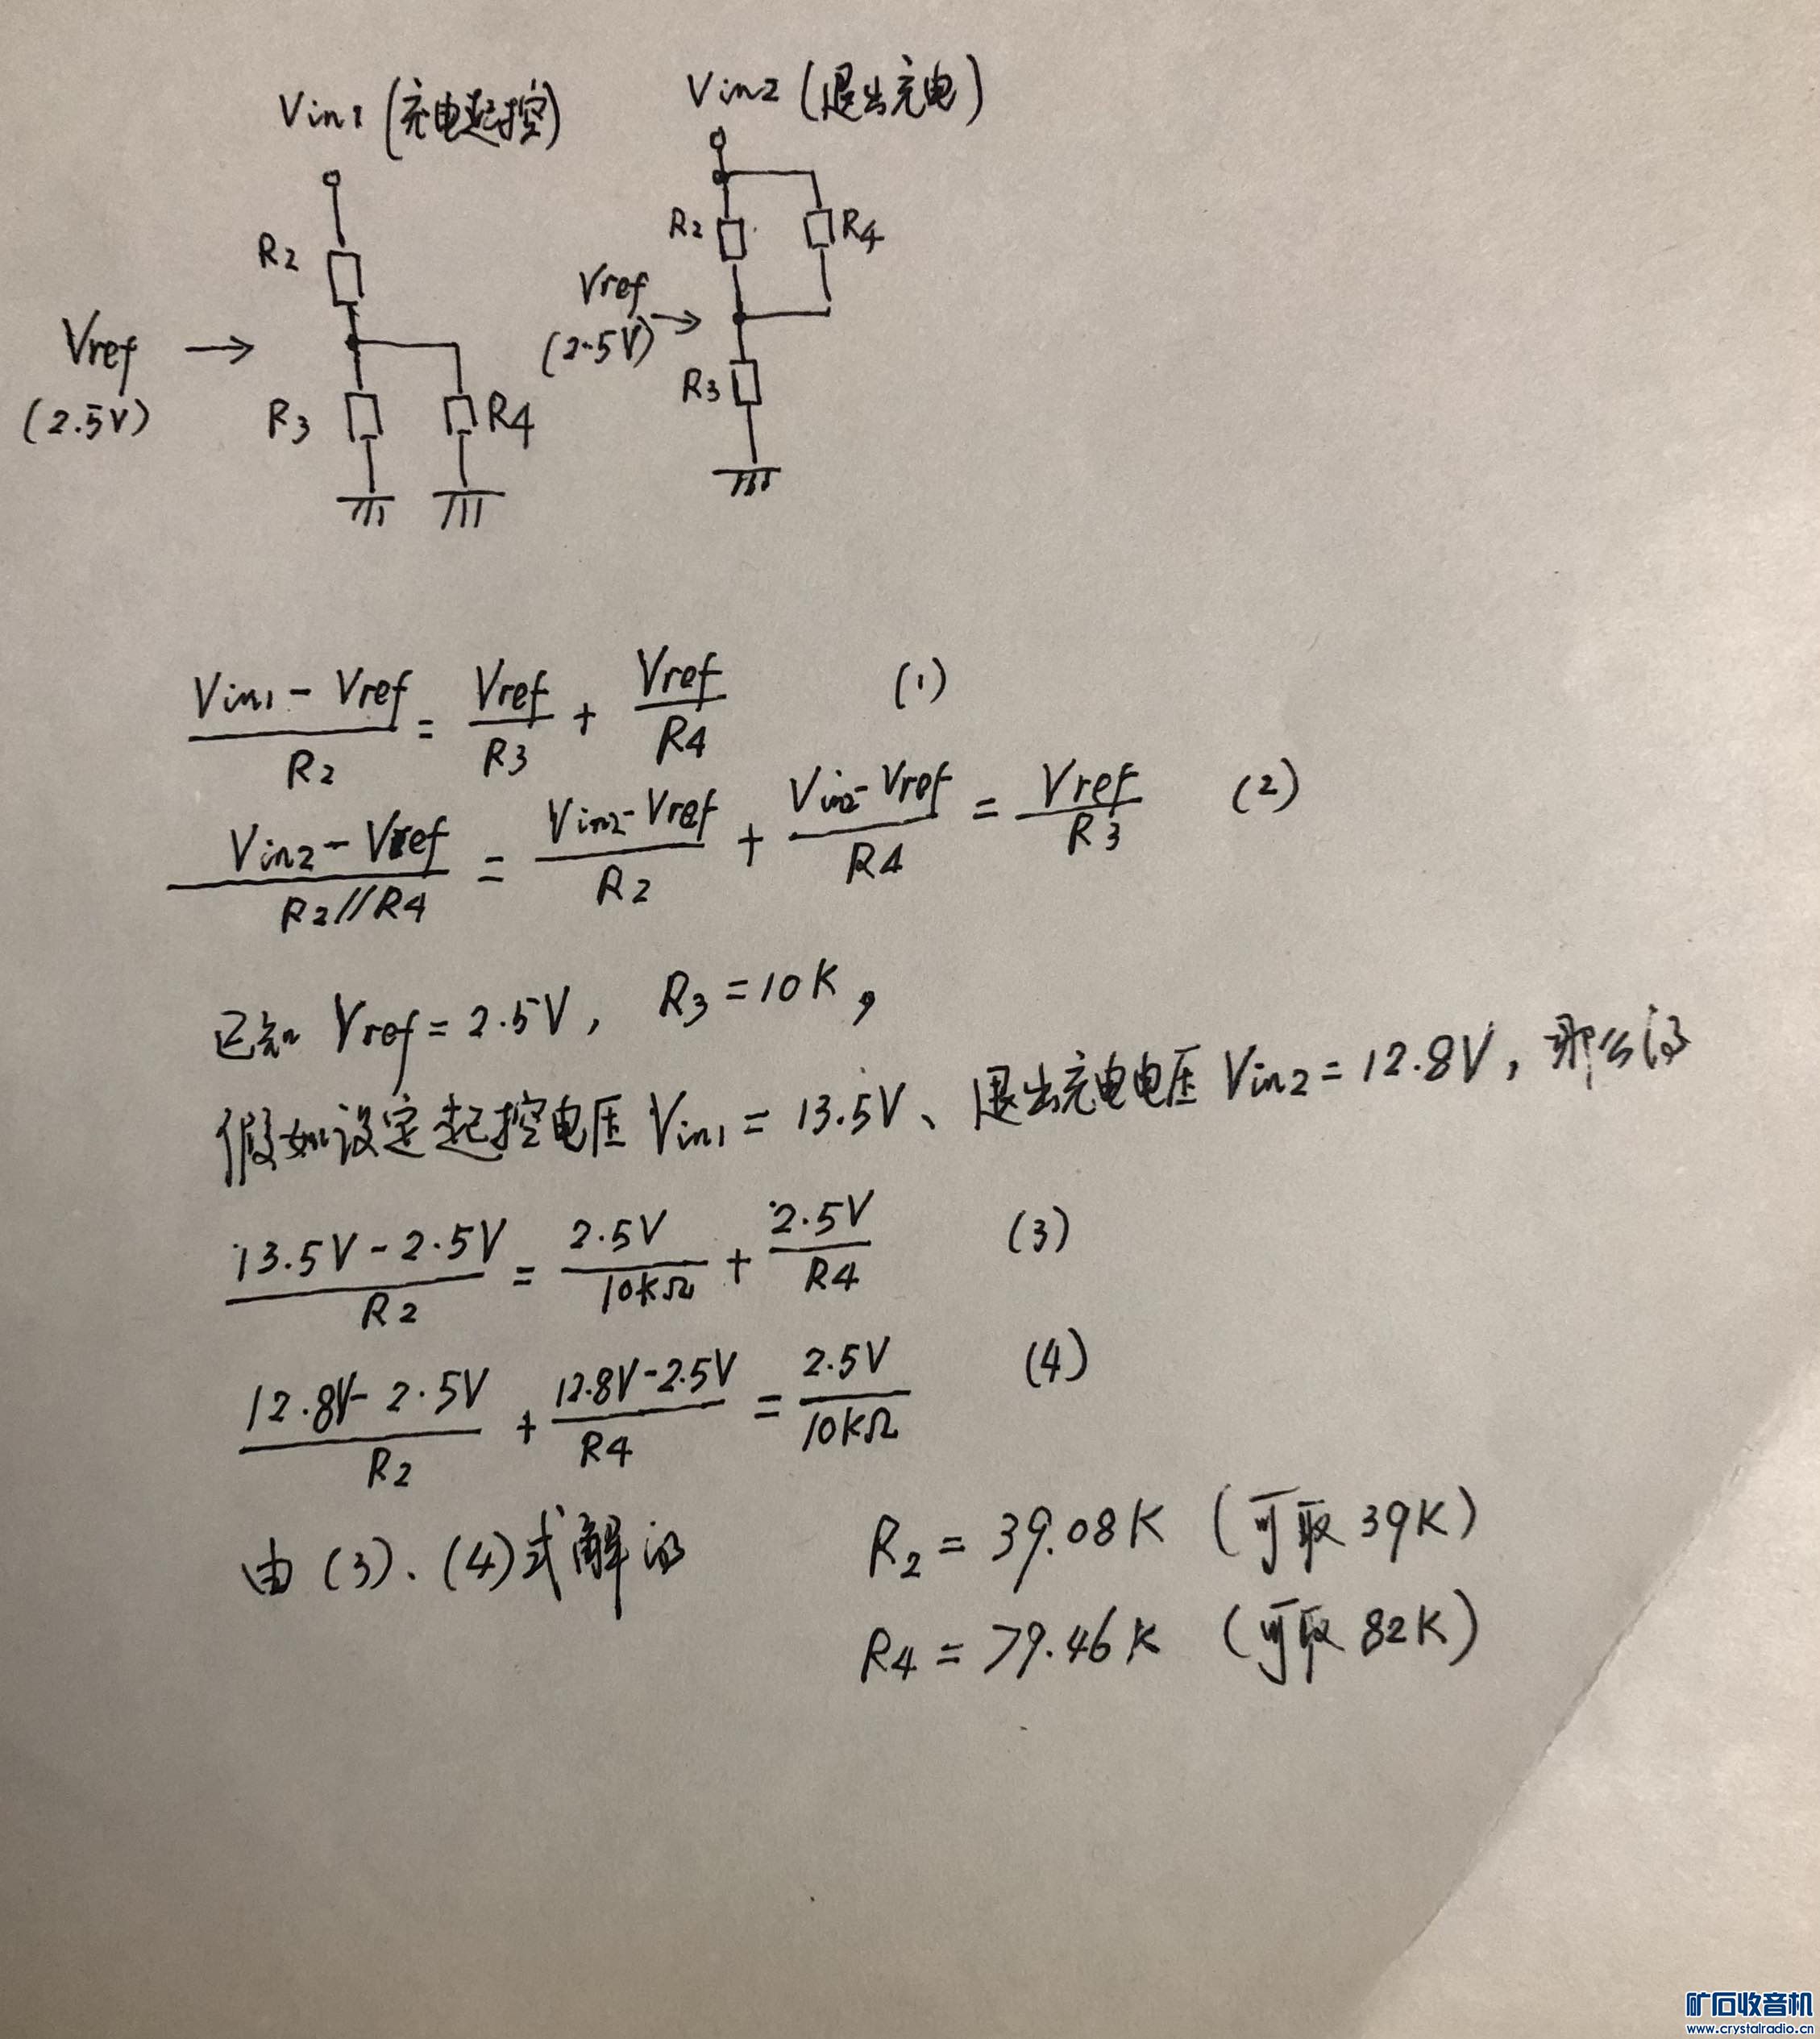 Vin1 (充电起控)
Vin2 (退出充电)
R2
R2
R4
Vref
(2.5V)
Vref
(2.5V)
R3
R4
R3
(Vin1 - Vref)/R2 = Vref/R3 + Vref/R4 (1)
(Vin2 - Vref)/(R2//R4) = (Vin2 - Vref)/R2 + (Vin2 - Vref)/R4 = Vref/R3 (2)
已知 Vref = 2.5V, R3 = 10K,
假如设定起控电压 Vin1 = 13.5V、退出充电电压 Vin2 = 12.8V, 那么得
(13.5V - 2.5V)/R2 = 2.5V/10KΩ + 2.5V/R4 (3)
(12.8V - 2.5V)/R2 + (12.8V - 2.5V)/R4 = 2.5V/10KΩ (4)
由 (3)、(4)式解得 R2 = 39.08K (可取 39K)
R4 = 79.46K (可取 82K)
矿石收音机
www.crystalradio.cn